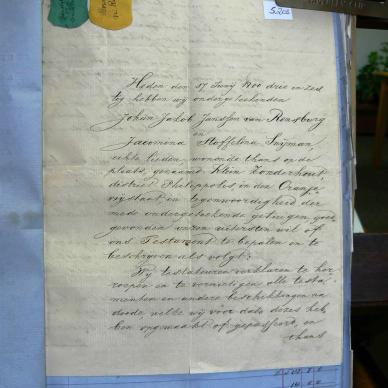 Heden den 17 Junij 1900 drie en zes
tig hebben wij ondergeteekenden
Johan Jakob Janssen van Rensburg
en
Jacomina Stoffelina Snijman,
echte lieden, wonende thans op de
plaats, genaamd Klein Zonderhout
district Philippolis in den Oranje
vrijstaat in tegenwoordigheid der
mede ondergeteekende getuigen, goed
gevonden onzen uitersten wil of
ons Testament te bepalen en te
beschrijven als volgt:
Wij testateuren verklaren te her
roepen en te vernietigen alle testa
menten en andere beschikkingen na
doode, welke wij voor dato dezes heb
ben opgemaakt of gepasseerd, en
thans